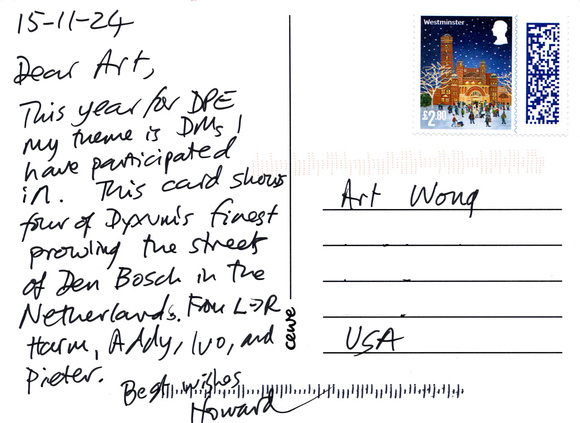 15-11-24
Dear Art,
This year for DPE
my theme is DMs I
have participated
in. This card shows
four of Dyxum's finest
prowling the streets
of Den Bosch in the
Netherlands. From L→R
Harm, Addy, Ivo, and
Pieter.
Best wishes
Howard
cewe
Westminster
£2.00
Art Wong
USA